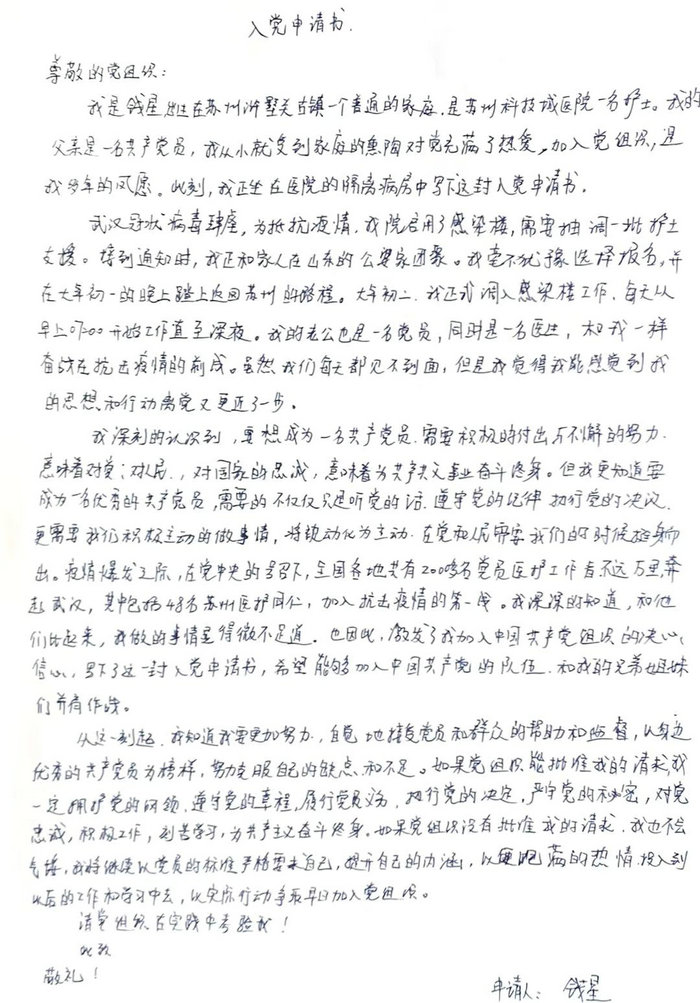 入党申请书.
尊敬的党组织：
我是钱星,出生在苏州浒墅关古镇一个普通的家庭.是苏州科技城医院一名护士。我的
父亲是一名共产党员，我从小就受到家庭的熏陶对党充满了热爱，加入党组织，是
我多年的夙愿。此刻,我正坐在医院的隔离病房中写下这封入党申请书.
武汉冠状病毒肆虐，为抵抗疫情.我院启用了感染楼，需要抽调一批护士
支援。接到通知时，我正和家人在山东的公婆家团聚。我毫不犹豫选择报名,并
在大年初一的晚上踏上返回苏州的路程。大年初二.我正式调入感染楼工作.每天从
早上07:00开始工作直至深夜。我的老公也是一名党员，同时是一名医生，和我一样
奋战在抗击疫情的前线。虽然我们每天都见不到面，但是我觉得我能感觉到我
的思想和行动离党又更近了一步。
我深刻的认识到，要想成为一名共产党员.需要积极的付出与不懈的努力.
意味着对党、对人民、，对国家的忠诚，意味着为共产主义事业奋斗终身。但我更知道要
成为一名优秀的共产党员，需要的不仅仅只是听党的话.遵守党的纪律 执行党的决议.
更需要我们积极主动的做事情，将被动化为主动.在党和人民需要我们的时候挺身而
出。疫情爆发之际，在党中央的号召下，全国各地共有200多名党员医护工作者不远万里奔
赴武汉，其中包括48名苏州医护同仁，加入抗击疫情的第一线。我深深的知道，和他
们比起来，我做的事情显得微不足道.也因此，激发了我加入中国共产党组织的决心、
信心，写下了这一封入党申请书，希望能够加入中国共产党的队伍.和我的兄弟姐妹
们并肩作战。
从这一刻起.我知道我要更加努力.自觉地接受党员和群众的帮助和监督，以身边
优秀的共产党员为榜样，努力克服自己的缺点和不足。如果党组织能批准我的请求,我
一定拥护党的纲领.遵守党的章程，履行党员义务.执行党的决定，严守党的秘密，对党
忠诚，积极工作，刻苦学习，为共产主义奋斗终身。如果党组织没有批准我的请求.我也不会
气馁，我将继续以党员的标准严格要求自己，提升自己的内涵，以更饱满的热情投入到
以后的工作和学习中去，以实际行动争取早日加入党组织。
请党组织在实践中考验我！
此致
敬礼！
申请人： 钱星